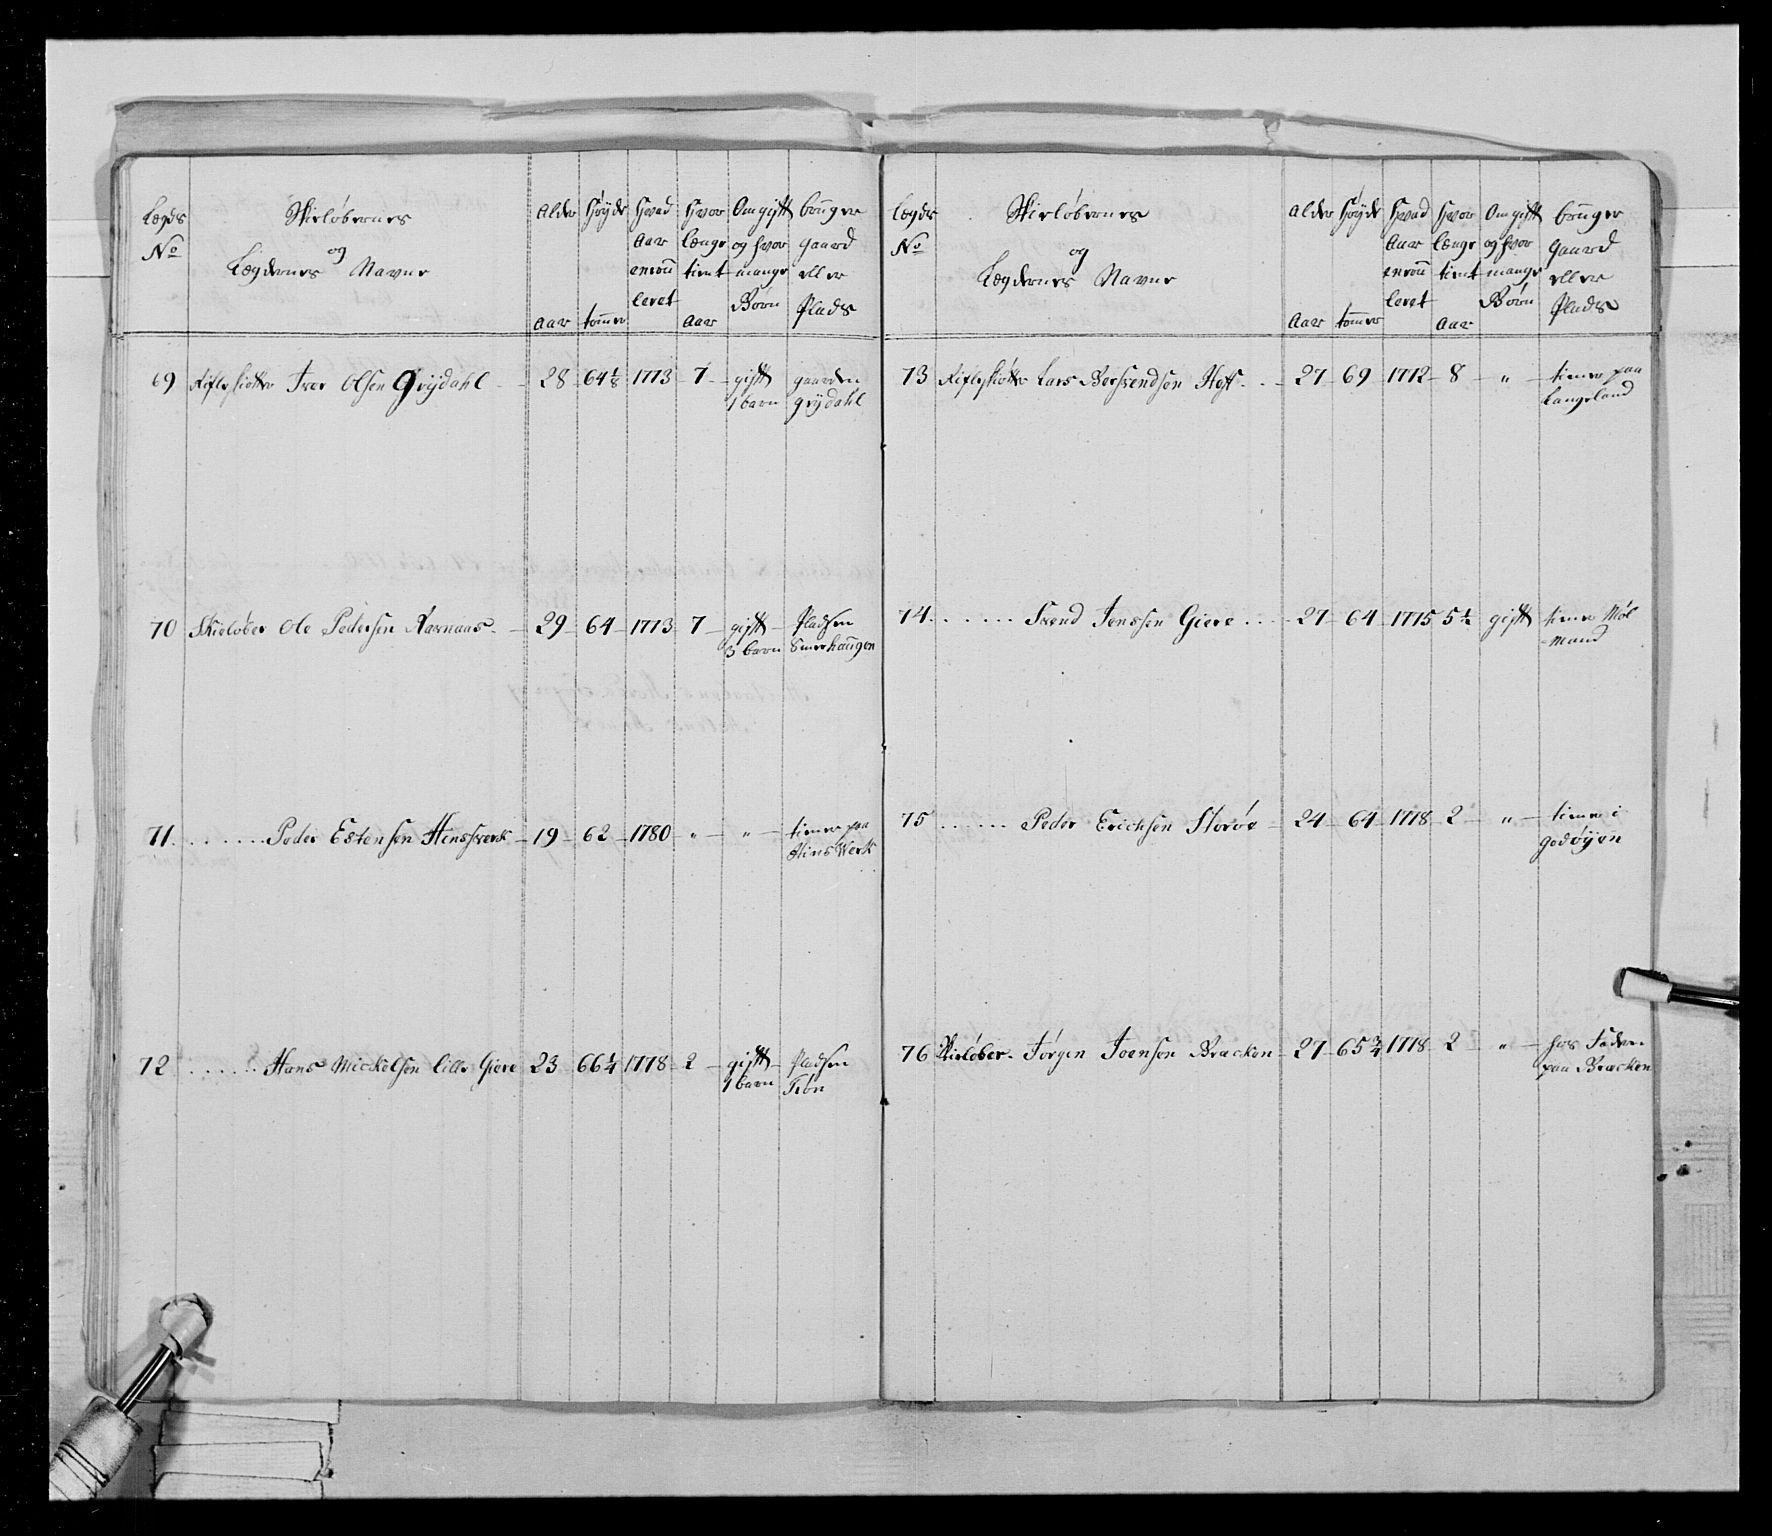 Lægds
No
Skieløbernes
og
Lægdernes Navne
Alder
Aar
Høyde
tomer
Hvad
Aar
enroul
leret
Hvor
længe
tient
Aar
Om gift
og hvor
mange
Børn
bruger
gaard
eller
Plads
69 Rifleskiøtter Iver Olsen Grydahl - 28 - 64 1/8 1773 - 7 - gift gaarden
1 barn Grydahl
70 Skieløber Ole Pedersen Aasnaas. - 29 - 64 - 1773 7 - gift - Pladsen
3 barn Smerhaugen
71. . . . . . . Peder Estensen Hinsswerk - 19 - 62 - 1780 „ - „ - tiener paa
Hins Werk
72 . . . . . . Hans Mickelsen lille Giere 23 66 1/4 1778 - 2 - gift - Pladsen
1 barn
Lægds
No
Skieløbernes
og
Lægdernes Navne
Alder
Aar
Høyde
tomer
Hvad
Aar
enroul
leret
Hvor
længe
tient
Aar
Om gift
og hvor
mange
Børn
bruger
gaard
eller
Plads
73 Rifleskiøtter Lars Hoff . . . 27 - 69 1772 - 8 - „ - tiener paa
Langeland
74. . . . . . . Svend Jenssen Giere . . . - 27 - 64 - 1775 5 1/2 gift tiener Møl
-mand
75 . . . . . . Peder Erichsen Storøe - 24 - 64 - 1778 2 - „ - tiener i
Godøyen
76 Skieløber. Jørgen Joensen Bracken - 27 - 65 3/4 1778 - 2 - „ - hos Faderen
paa Bracken